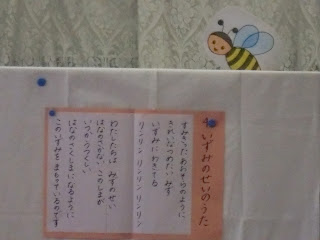 4. いずみのせいのうた
すみきったあおぞらのように
きれいなつめたい みず
いずみにわきでる
リンリン リンリン リンリン
わたしたちは みずのせい
はなのさかない このしまが
いつか うつくしい
はなのさくしまになるように
このいずみを まもっているのです